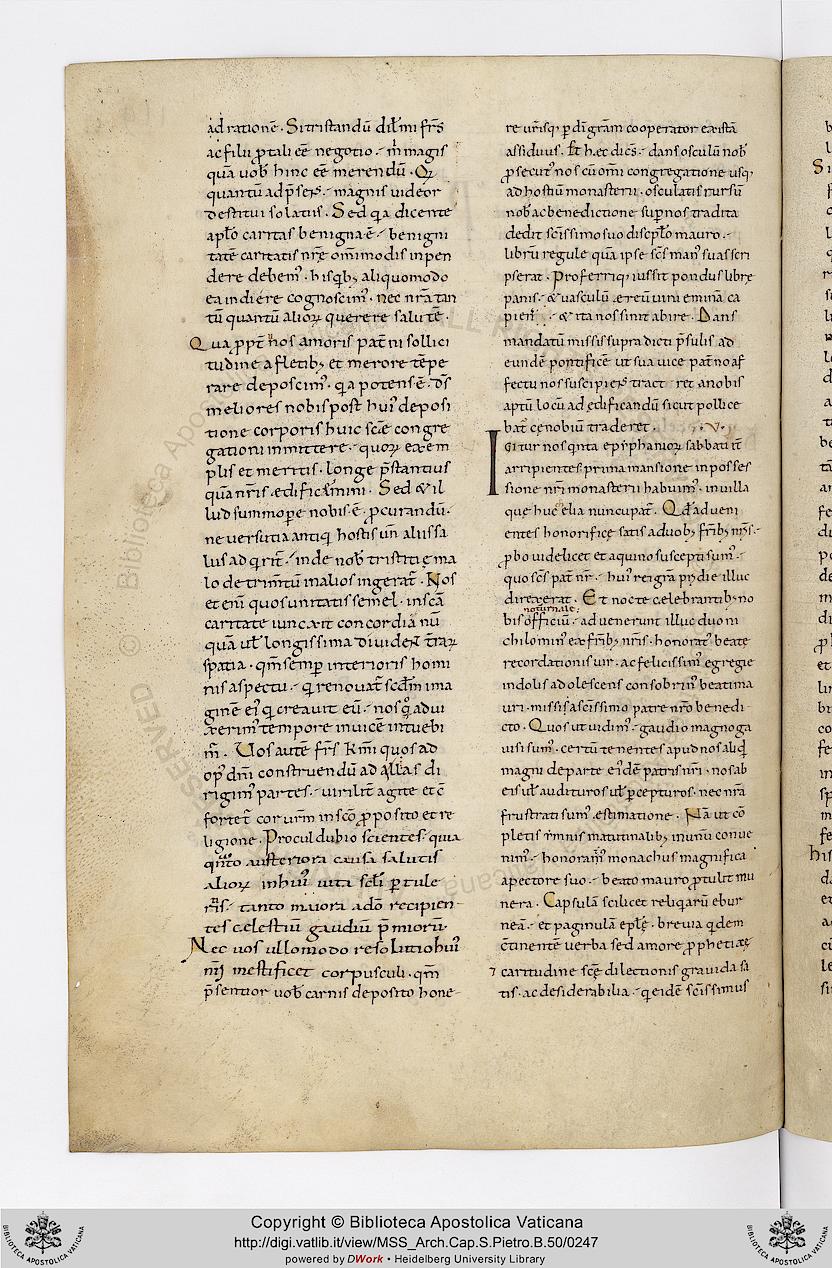 ad rationē. Si tristandū dilc̄mi fr̄s
ac filii ꝓ tali eē negotio. m̄ magis
quā uob̄ hinc eē merendū. Qꝛ
quantū ad p̄sēs. magnis uideor
destitui solatiis. Sed q̨a dicente
apl̄o caritas benigna ē. benigni
tatē caritatis nr̄ę omīmodis inpen
dere debem᾿. his qb; aliquomodo
ea indiere cognoscim᾿. nec nr̄a tan
tū quantū alioꝝ querere salutē.
Qua ꝓpt̄ hos amoris pat̄ni sollici
tudine a fletib; et merore tēpe
rare deposcim᾿. q̨a potens ē. d̄s
meliores nobis post hui᾿ deposi
tione corporis huic scē congre
gationi inmittere. quoꝝ exem
plis et meritis. longe p̄stantius
quā nr̄is ędificemini. Sed & il
lud summoꝑe nobis ē. ꝓcurandū.
ne uersutia antiq̨ hostis un̄ aliis sa
lus adq̨rit̄. inde nob̄ tristitię ma
lo detrim̄tū in alios ingerat̄. Nos
et enī quos unitatis semel. in scā
caritate iunxit concordia nū
quā ut̄ longissima diuident̄ t̄raꝝ
spatia. qm̄ semꝑ interioris homi
nis aspectu. q̨ renouat̄ scd̄m ima
ginē ei᾿ q̨ creauit eū. nos qͦ adui
xerim᾿ tempore inuicē intuebi
m̄. Uos autē fr̄s k̄mi quos ad
op᾿ dīni construendū ad allas di
rigim᾿ partes. uirilit̄ agite et c̄
fortet̄ cor ur̄m in scō ꝓposito et re
ligione. Procul dubio scientes. quia
qn̄to austeriora causa salutis
alioꝝ in hui᾿ uita scl̄i ꝑtule
ritis. tanto maiora a dō recipien
tes cęlestiū gaudiū p̄mioru.
Nec uos ullomodo resolutio hui᾿
m̄i mestificet corpusculi. qm̄
p̄sentior uob̄ carnis deposito hone
re ur̄isq; ꝑ dī gr̄am cooperator existā
assiduus. Et hęc dicēs. dans osculū nob̄
ꝓsecut᾿ nos cū om̄i congregatione usq;
ad hostiū monasterii. osculatis rursū
nob̄ ac benedictione sup nos tradita
dedit sc̄issimo suo discipl̄o mauro.
librū regule quā ipse scs̄ manˀ sua scri
pserat. Proferriq; iussit pondus librę
panis. & uasculū ęreū uini eminā ca
piens̄. & ita nos sinit abire. Dans
mandatū missis supradicti p̄sulis ad
eundē pontificē ut sua uice pat̄no af
fectu nos suscipiens̄ tractaret a nobis
aptū locū ad ędificandū sicut pollice
bat̄ cenobiū traderet. .v.
Igitur nos q̨nta epyphanioꝝ sabbati it̄
arripientes prima mansione in posses
sione nr̄i monasterii habuim᾿. in uilla
que huc̄elia nuncupat̄. Qd̄ adueni
entes honorifice satis a duob; fr̄ib; nr̄is.
ꝓbo uidelicet et aquino suscepti sum᾿.
quos scs̄ pat̄ nr̄. hui᾿ rei gr̄a pridie illuc
direxerat. Et nocte celebrantib; no
nocturnale:
bis officiū. aduenerunt illuc duo ni
chilomin᾿ ex fr̄ib; nr̄is. honorat᾿ beatę
recordationis uir. ac felicissim᾿ egregie
indolis adolescens consobrin᾿ beati ma
uri. missis a sc̄issimo patre nr̄o benedi
cto. Quos ut uidim᾿. gaudio magno ga
uisi sum᾿. certū tenentes apud nos aliq̨d
magni de parte ei᾿dē patris nr̄i. nos ab
eis ut̄ audituros ut̄ ꝑcepturos. nec nr̄a
frustrati sum᾿ ęstimatione. Nā ut cō
pletis ymnis matutinalib; in unū conue
nim᾿. honorat᾿ monachus magnifica
a pectore suo. beato mauro ꝓtulit mu
nera. Capsulā scilicet reliqaruū ebur
neā. et paginulā eplę. breuia q̨dem
c̄tinentē uerba sed amore ꝓphetiæ
⁊ caritudine scę dilectionis grauida sa
tis. ac desiderabilia. q̨ eidē sc̄issimus
Copyright © Biblioteca Apostolica Vaticana
http://digi.vatlib.it/view/MSS_Arch.Cap.S.Pietro.B.50/0247
powered by DWork • Heidelberg University Library
BIBLIOTECA APOSTOLICA VATICANA
BIBLIOTECA APOSTOLICA VATICANA